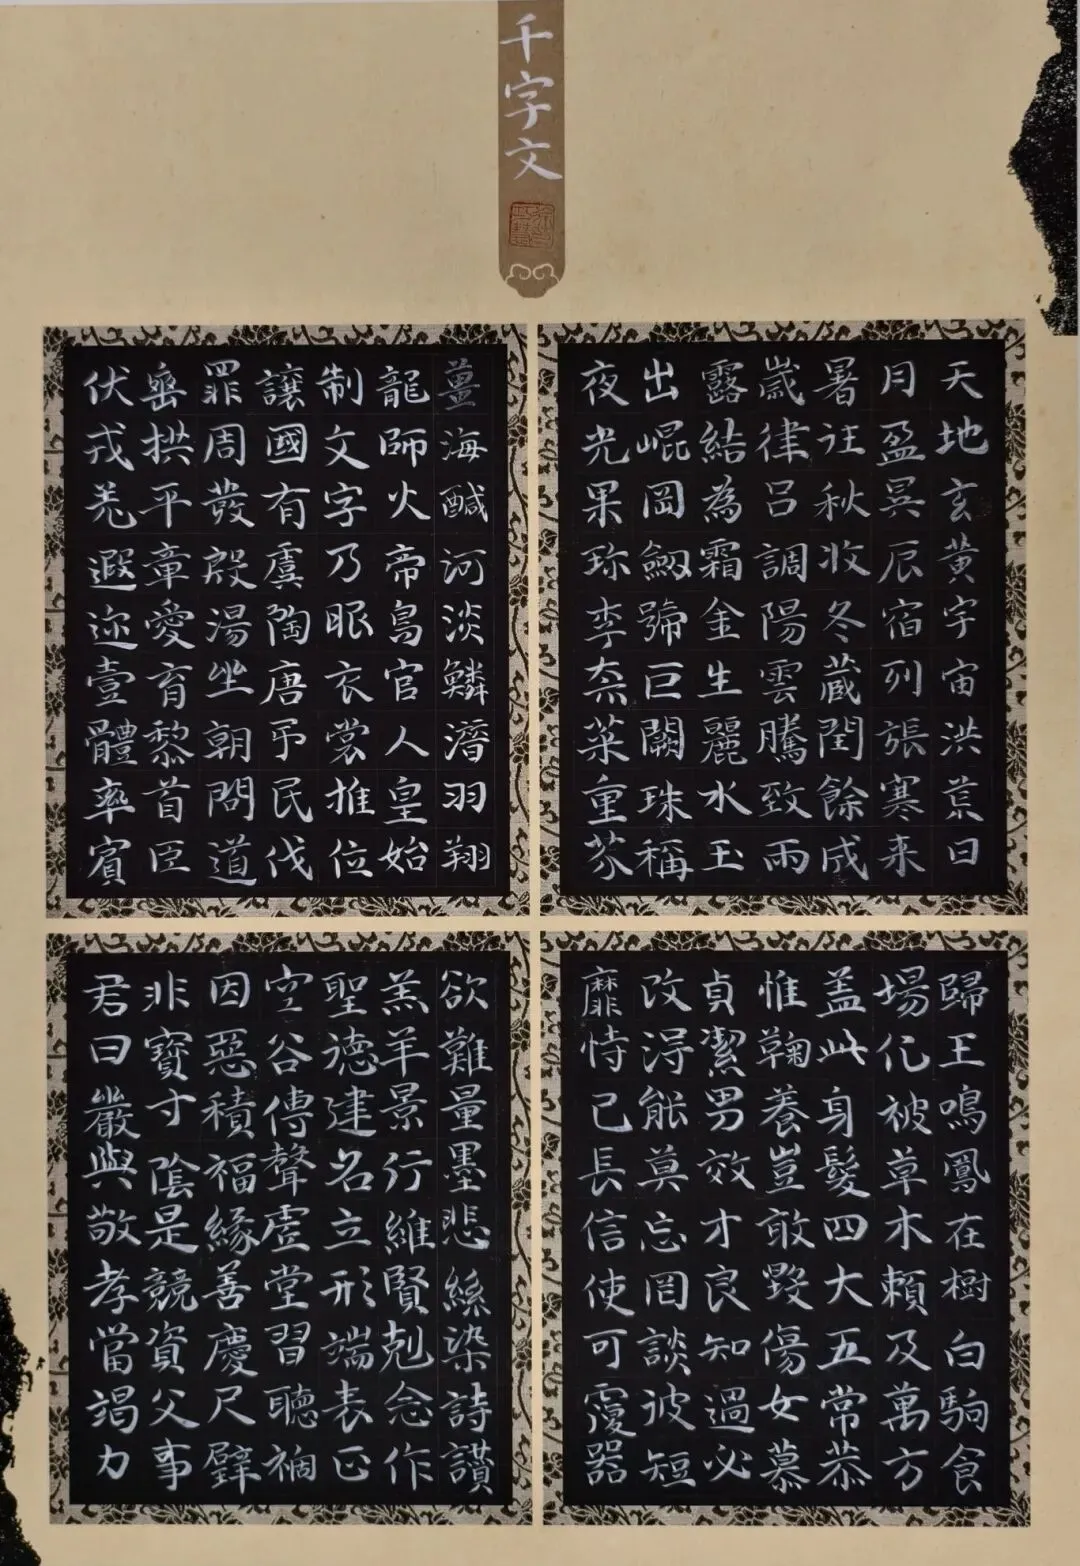 千字文
天地玄黃宇宙洪荒日
月盈昃辰宿列張寒来
暑往秋收冬藏閏餘成
歲律吕調陽雲騰致雨
露結為霜金生麗水玉
出崐岡劔號巨闕珠稱
夜光果珎李柰菜重芥
薑海醎河淡鱗潛羽翔
龍師火帝鳥官人皇始
制文字乃服衣裳推位
讓國有虞陶唐弔民伐
罪周發殷湯坐朝問道
垂拱平章愛育黎首臣
伏戎羌遐迩壹體率賓
歸王鳴鳳在樹白駒食
場化被草木賴及萬方
盖此身髮四大五常恭
惟鞠養豈敢毀傷女慕
貞潔男效才良知過必
改得能莫忘罔談彼短
靡恃己長信使可覆器
欲難量墨悲絲染詩讃
羔羊景行維賢剋念作
聖德建名立形端表正
空谷傳聲虛堂習聽禍
因惡積福緣善慶尺璧
非寶寸陰是競資父事
君曰嚴與敬孝當竭力